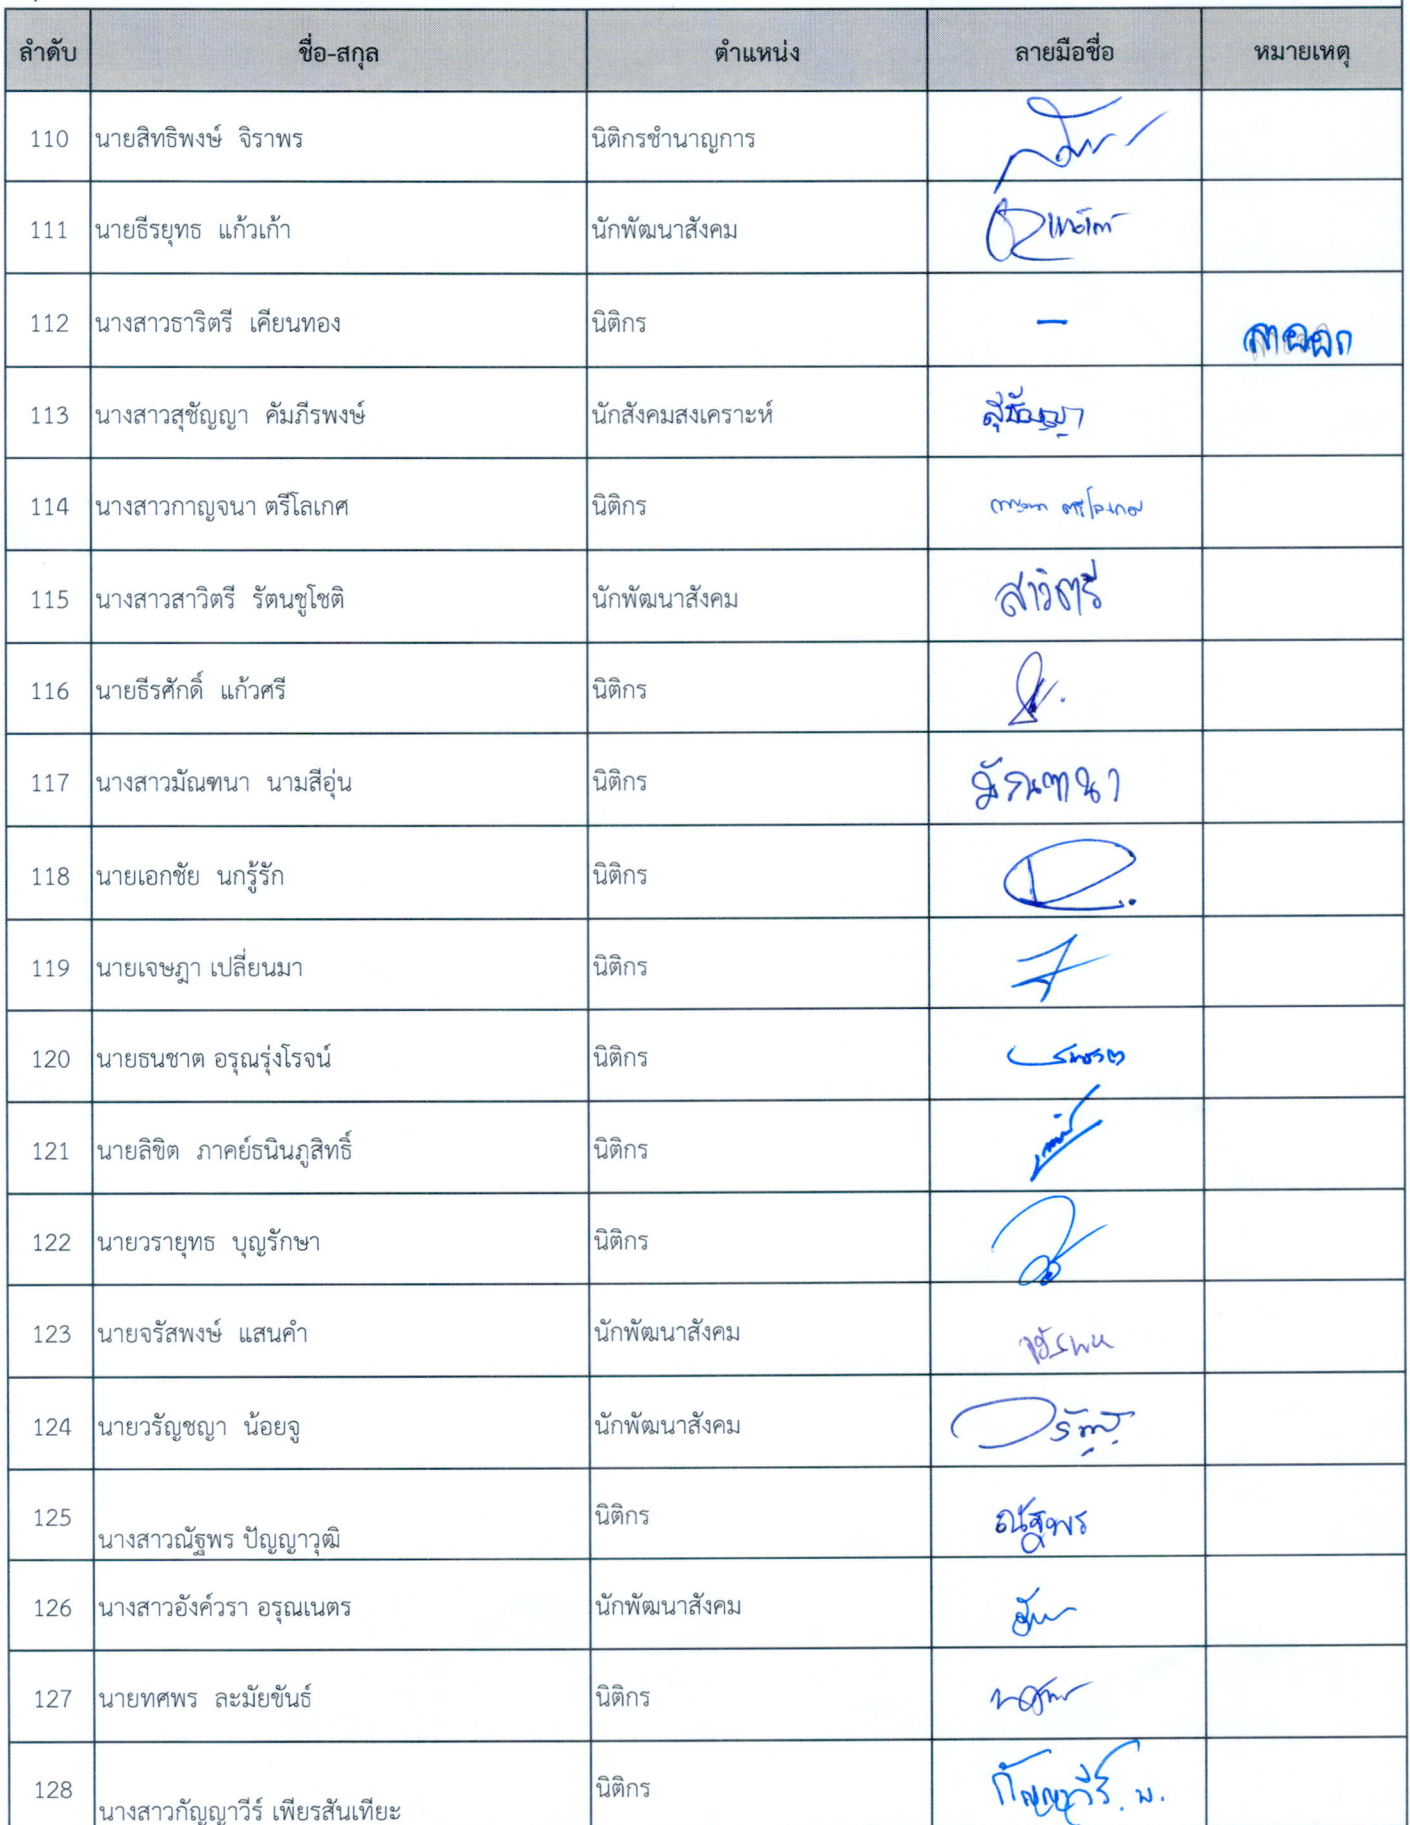 ลำดับ ชื่อ-สกุล ตำแหน่ง ลายมือชื่อ หมายเหตุ
110 นายสิทธิพงษ์ จิราพร นิติกรชำนาญการ
111 นายธีรยุทธ แก้วเก้า นักพัฒนาสังคม
112 นางสาวธาริตรี เคียนทอง นิติกร – ลาออก
113 นางสาวสุชัญญา คัมภีรพงษ์ นักสังคมสงเคราะห์ สุชัญญา
114 นางสาวกาญจนา ตรีโลเกศ นิติกร กาญจนา ตรีโลเกศ
115 นางสาวสาวิตรี รัตนชูโชติ นักพัฒนาสังคม สาวิตรี
116 นายธีรศักดิ์ แก้วศรี นิติกร
117 นางสาวมัณฑนา นามสีอุ่น นิติกร มัณฑนา
118 นายเอกชัย นกรู้รัก นิติกร
119 นายเจษฎา เปลี่ยนมา นิติกร
120 นายธนชาต อรุณรุ่งโรจน์ นิติกร
121 นายลิขิต ภาคย์ธนินภูสิทธิ์ นิติกร
122 นายวรายุทธ บุญรักษา นิติกร
123 นายจรัสพงษ์ แสนคำ นักพัฒนาสังคม
124 นายวรัญชญา น้อยจู นักพัฒนาสังคม
125 นางสาวณัฐพร ปัญญาวุฒิ นิติกร ณัฐพร
126 นางสาวอังค์วรา อรุณเนตร นักพัฒนาสังคม
127 นายทศพร ละมัยขันธ์ นิติกร ทศพร
128 นางสาวกัญญาวีร์ เพียรสันเทียะ นิติกร กัญญาวีร์ พ.